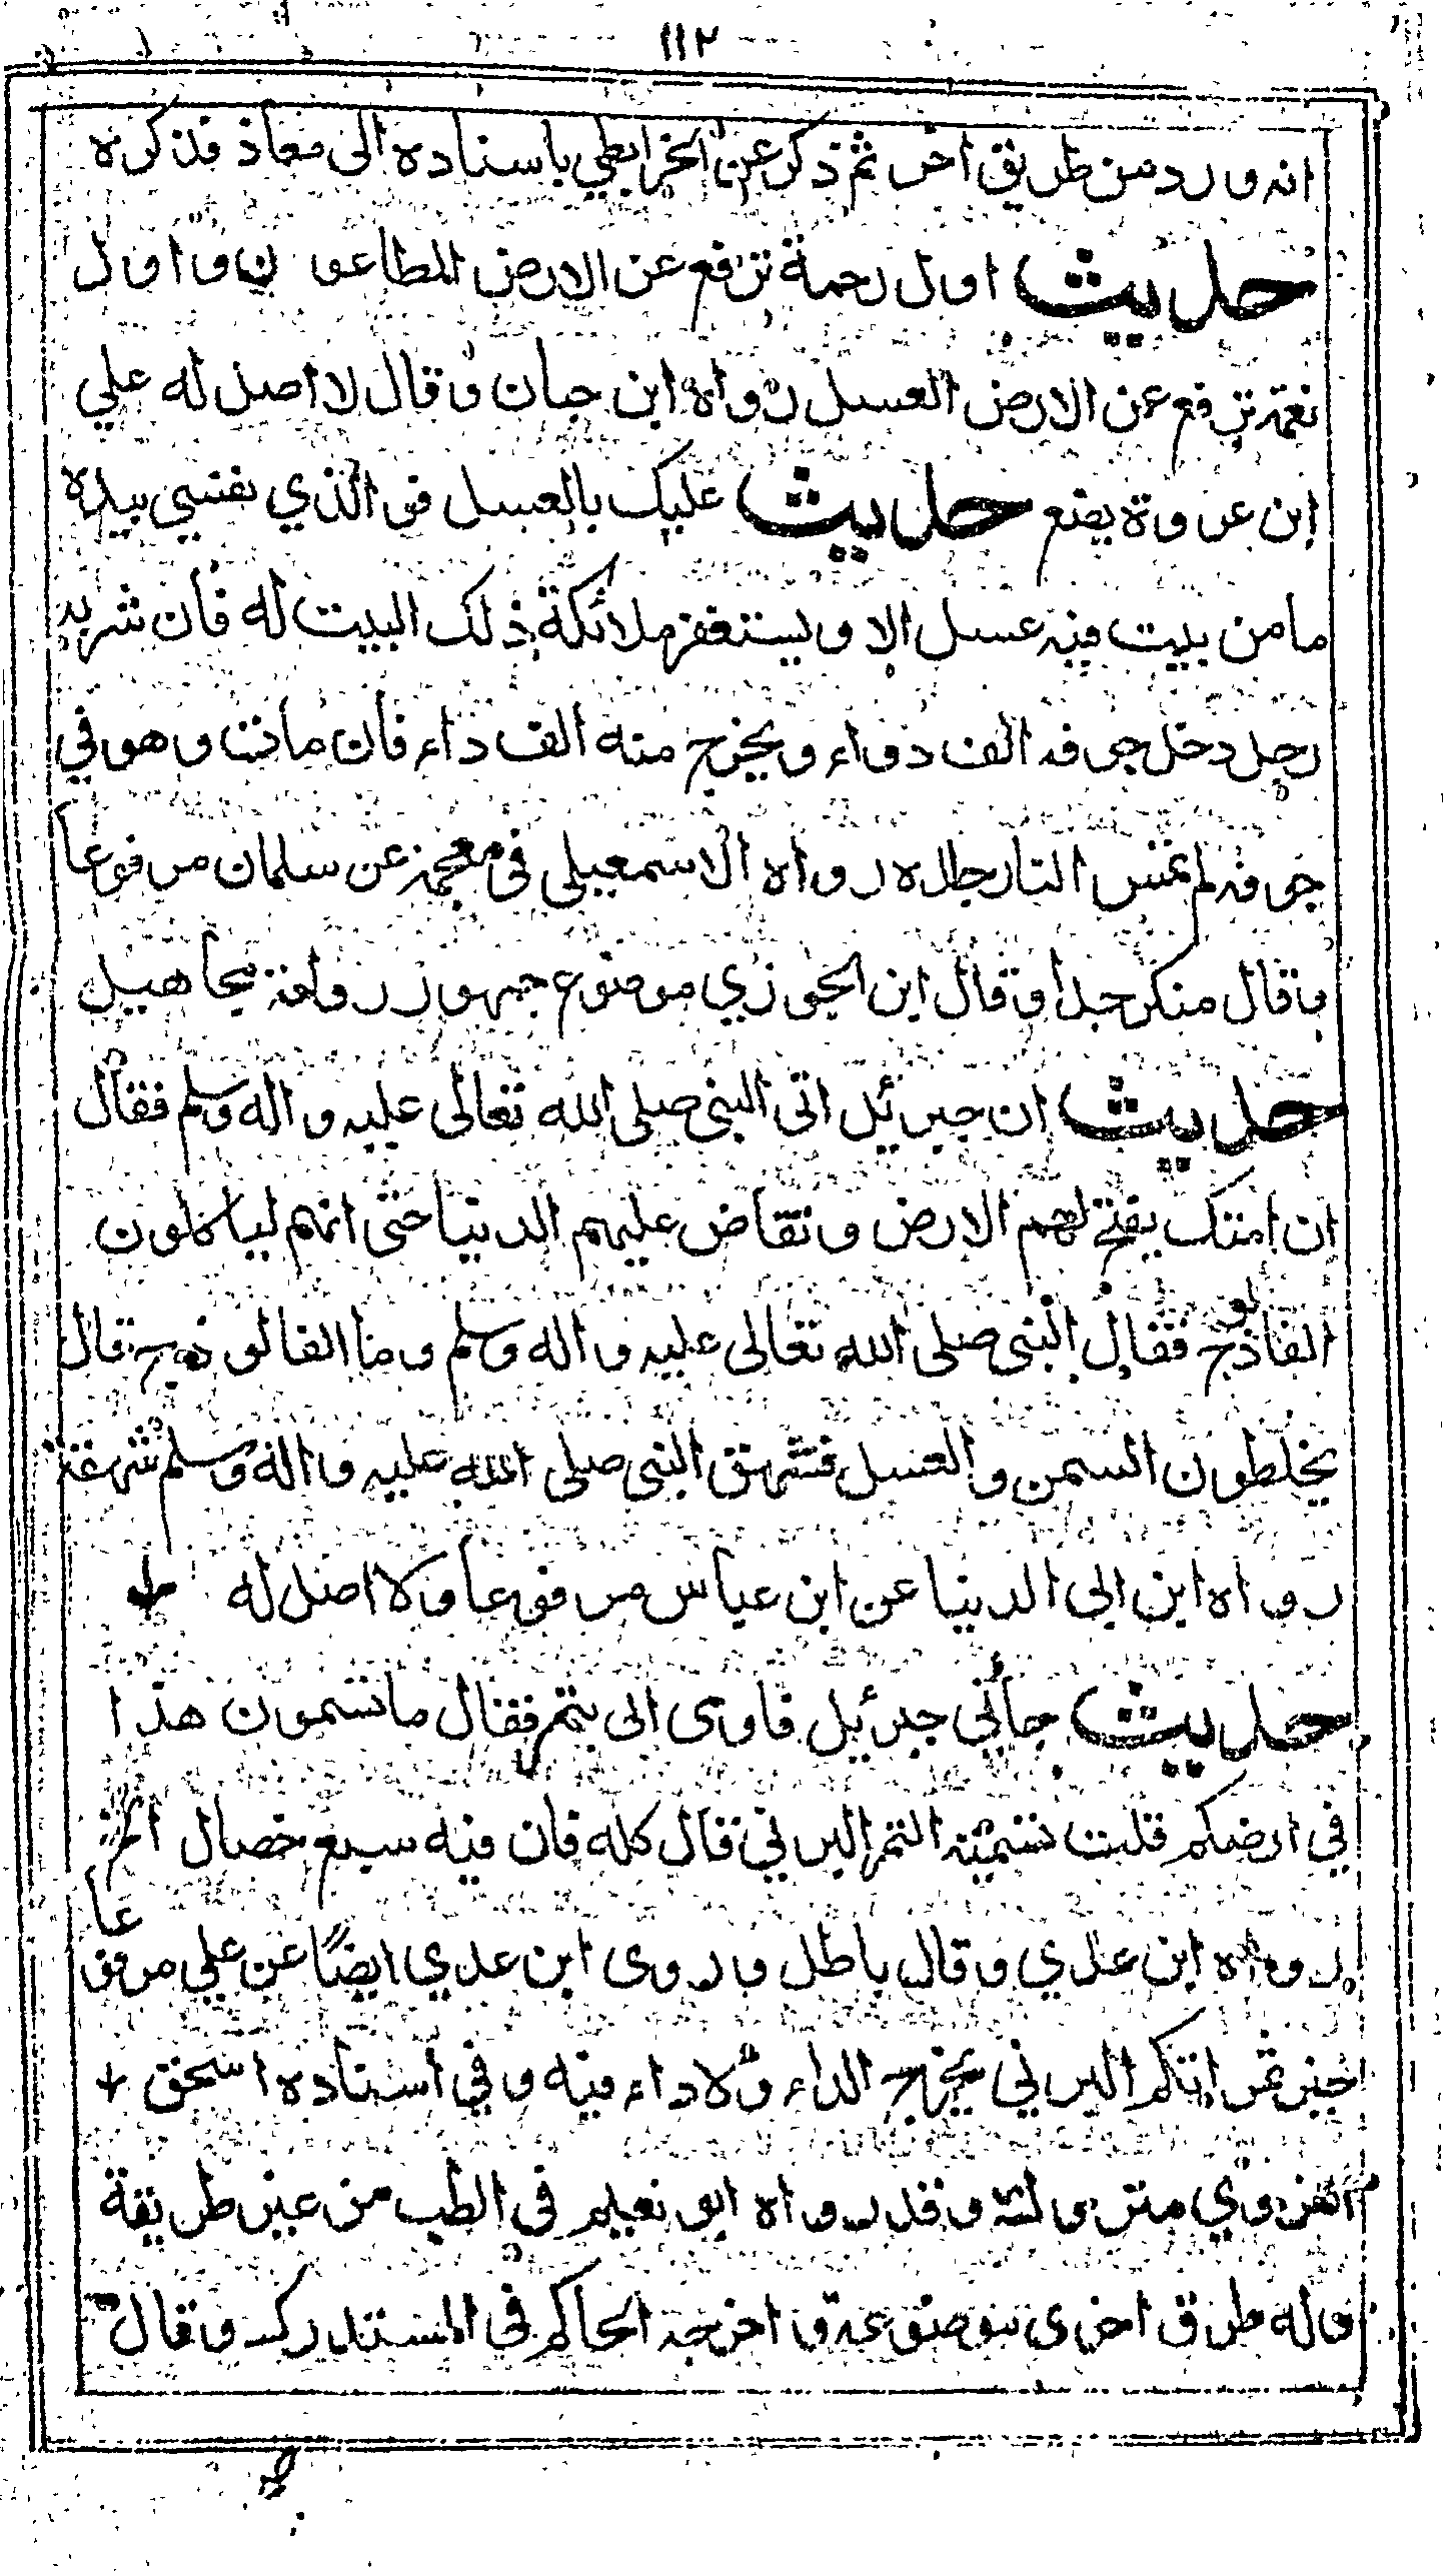 ١١٢
انه ورد من طريق اخر ثم ذكر عن الخرابطي باسناده الى معاذ فذكره
حديث اول رحمة ترفع عن الارض الطاعون واول
نعمة ترفع عن الارض العسل رواه ابن حبان وقال لا اصل له علي
ابن عروة يضع حديث عليك بالعسل فو الذي نفسي بيده
ما من بيت فيه عسل الا ويستغفر ملائكة ذلك البيت له فان شربه
رجل دخل جوفه الف دواء ويخرج منه الف داء فان مات وهو في
جوفه لم تمس النار جلده رواه الاسمعيلى في معجمه عن سلمان مرفوعا
وقال منكر جدا وقال ابن الجوزي موضوع جمهور رواته مجاهيل
حديث ان جبرئيل اتى النبى صلى الله تعالى عليه واله وسلم فقال
ان امتك يفتح لهم الارض وتفاض عليهم الدنيا حتى انهم ليأكلون
الفالوذج فقال النبى صلى الله تعالى عليه واله وسلم وما الفالوذج قال
يخلطون السمن والعسل فشهق النبى صلى الله عليه واله وسلم شهقة
رواه ابن ابى الدنيا عن ابن عباس مرفوعا ولا اصل له
حديث جائني جبرئيل فاوى الى بتمر فقال ما تسمون هذا
في ارضكم قلت نسميه التمر البرني قال كله فان فيه سبع خصال الخ
رواه ابن عدي وقال باطل وروى ابن عدي ايضًا عن علي مرفوعا
خير تمراتكم البرني يخرج الداء ولا داء فيه وفي اسناده اسحق
الفروي متروك وقد رواه ابو نعيم في الطب من غير طريقة
وله طرق اخرى واخرجه الحاكم في المستدرك وقال